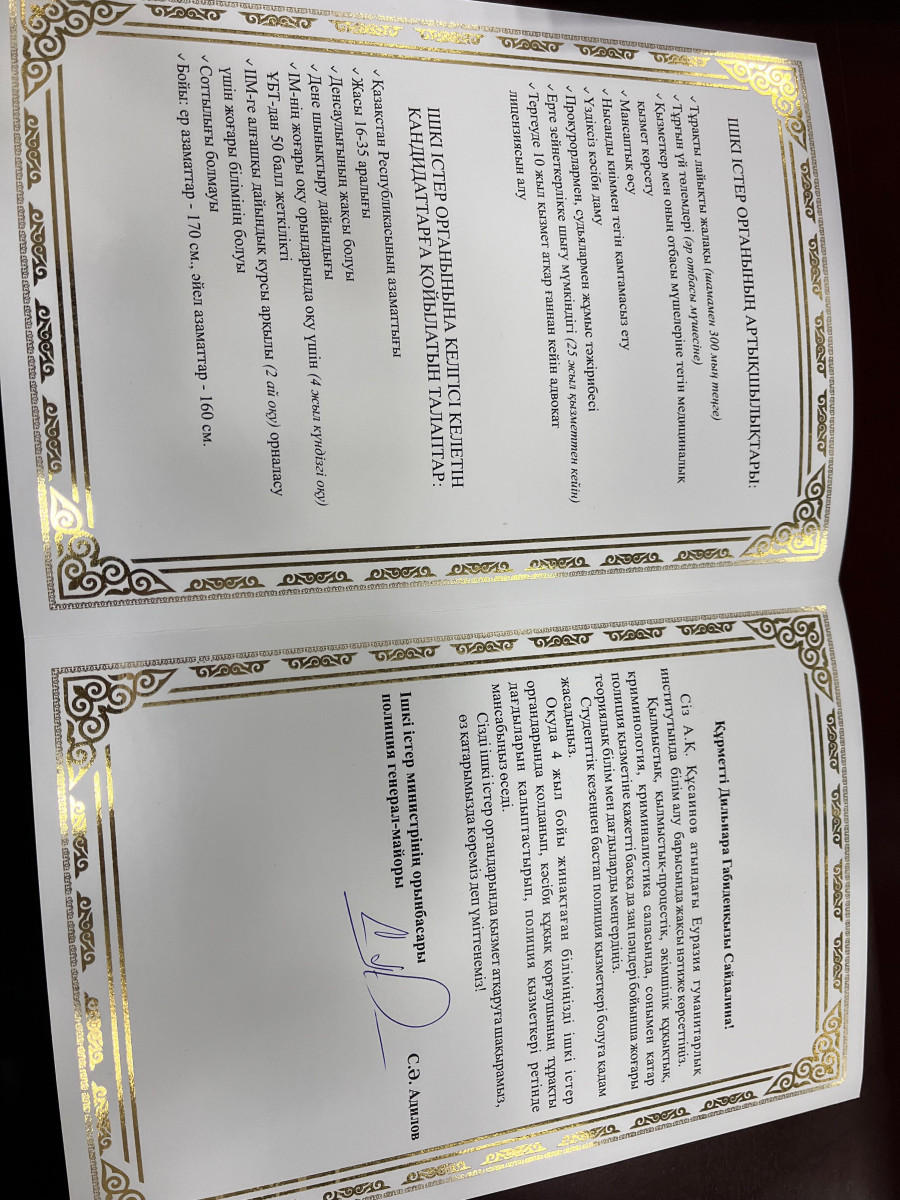 ІШКІ ІСТЕР ОРГАНЫНЫҢ АРТЫҚШЫЛЫҚТАРЫ:
✓Тұрақты лайықты жалақы (шамамен 300 мың теңге)
✓Тұрғын үй төлемдері (әр отбасы мүшесіне)
✓Қызметкер мен оның отбасы мүшелеріне тегін медициналық
қызмет көрсету
✓Мансаптық өсу
✓Нысанды киіммен тегін қамтамасыз ету
✓Үздіксіз кәсіби даму
✓Прокурорлармен, судьялармен жұмыс тәжірибесі
✓Ерте зейнеткерлікке шығу мүмкіндігі (25 жыл қызметтен кейін)
✓Тергеуде 10 жыл қызмет атқар ғаннан кейін адвокат
лицензиясын алу
ІШКІ ІСТЕР ОРГАНЫНЫНА КЕЛГІСІ КЕЛЕТІН
КАНДИДАТТАРҒА ҚОЙЫЛАТЫН ТАЛАПТАР:
✓Қазақстан Республикасының азаматтығы
✓Жасы 16-35 аралығы
✓Денсаулығының жақсы болуы
✓Дене шынықтыру дайындығы
✓ІМ-нің жоғары оқу орындарында оқу үшін (4 жыл күндізгі оқу)
ҰБТ-дан 50 балл жеткілікті
✓ІІМ-ге алғашқы дайындық курсы арқылы (2 ай оқу) орналасу
үшін жоғары білімінің болуы
✓Соттылығы болмауы
✓Бойы: ер азаматтар - 170 см., әйел азаматтар - 160 см.
Құрметті Дильнара Габиденқызы Сайдалина!
Сіз А.Қ. Құсаинов атындағы Еуразия гуманитарлық
институтында білім алу барысында жақсы нәтиже көрсеттіңіз.
Қылмыстық, қылмыстық-процестік, әкімшілік құқықтық,
криминология, криминалистика саласында, сонымен қатар
полиция қызметіне қажетті басқа да заң пәндері бойынша жоғары
теориялық білім мен дағдыларды меңгердіңіз.
Студенттік кезеңнен бастап полиция қызметкері болуға қадам
жасадыңыз.
Оқуда 4 жыл бойы жинақтаған біліміңізді ішкі істер
органдарында қолданып, кәсіби құқық қорғаушының тұрақты
дағдыларын қалыптастырып, полиция қызметкері ретінде
мансабыңыз өседі.
Сізді ішкі істер органдарында қызмет атқаруға шақырамыз,
өз қатарымызда көреміз деп үміттенеміз!
Ішкі істер министрінің орынбасары
полиция генерал-майоры С.Ә. Адилов